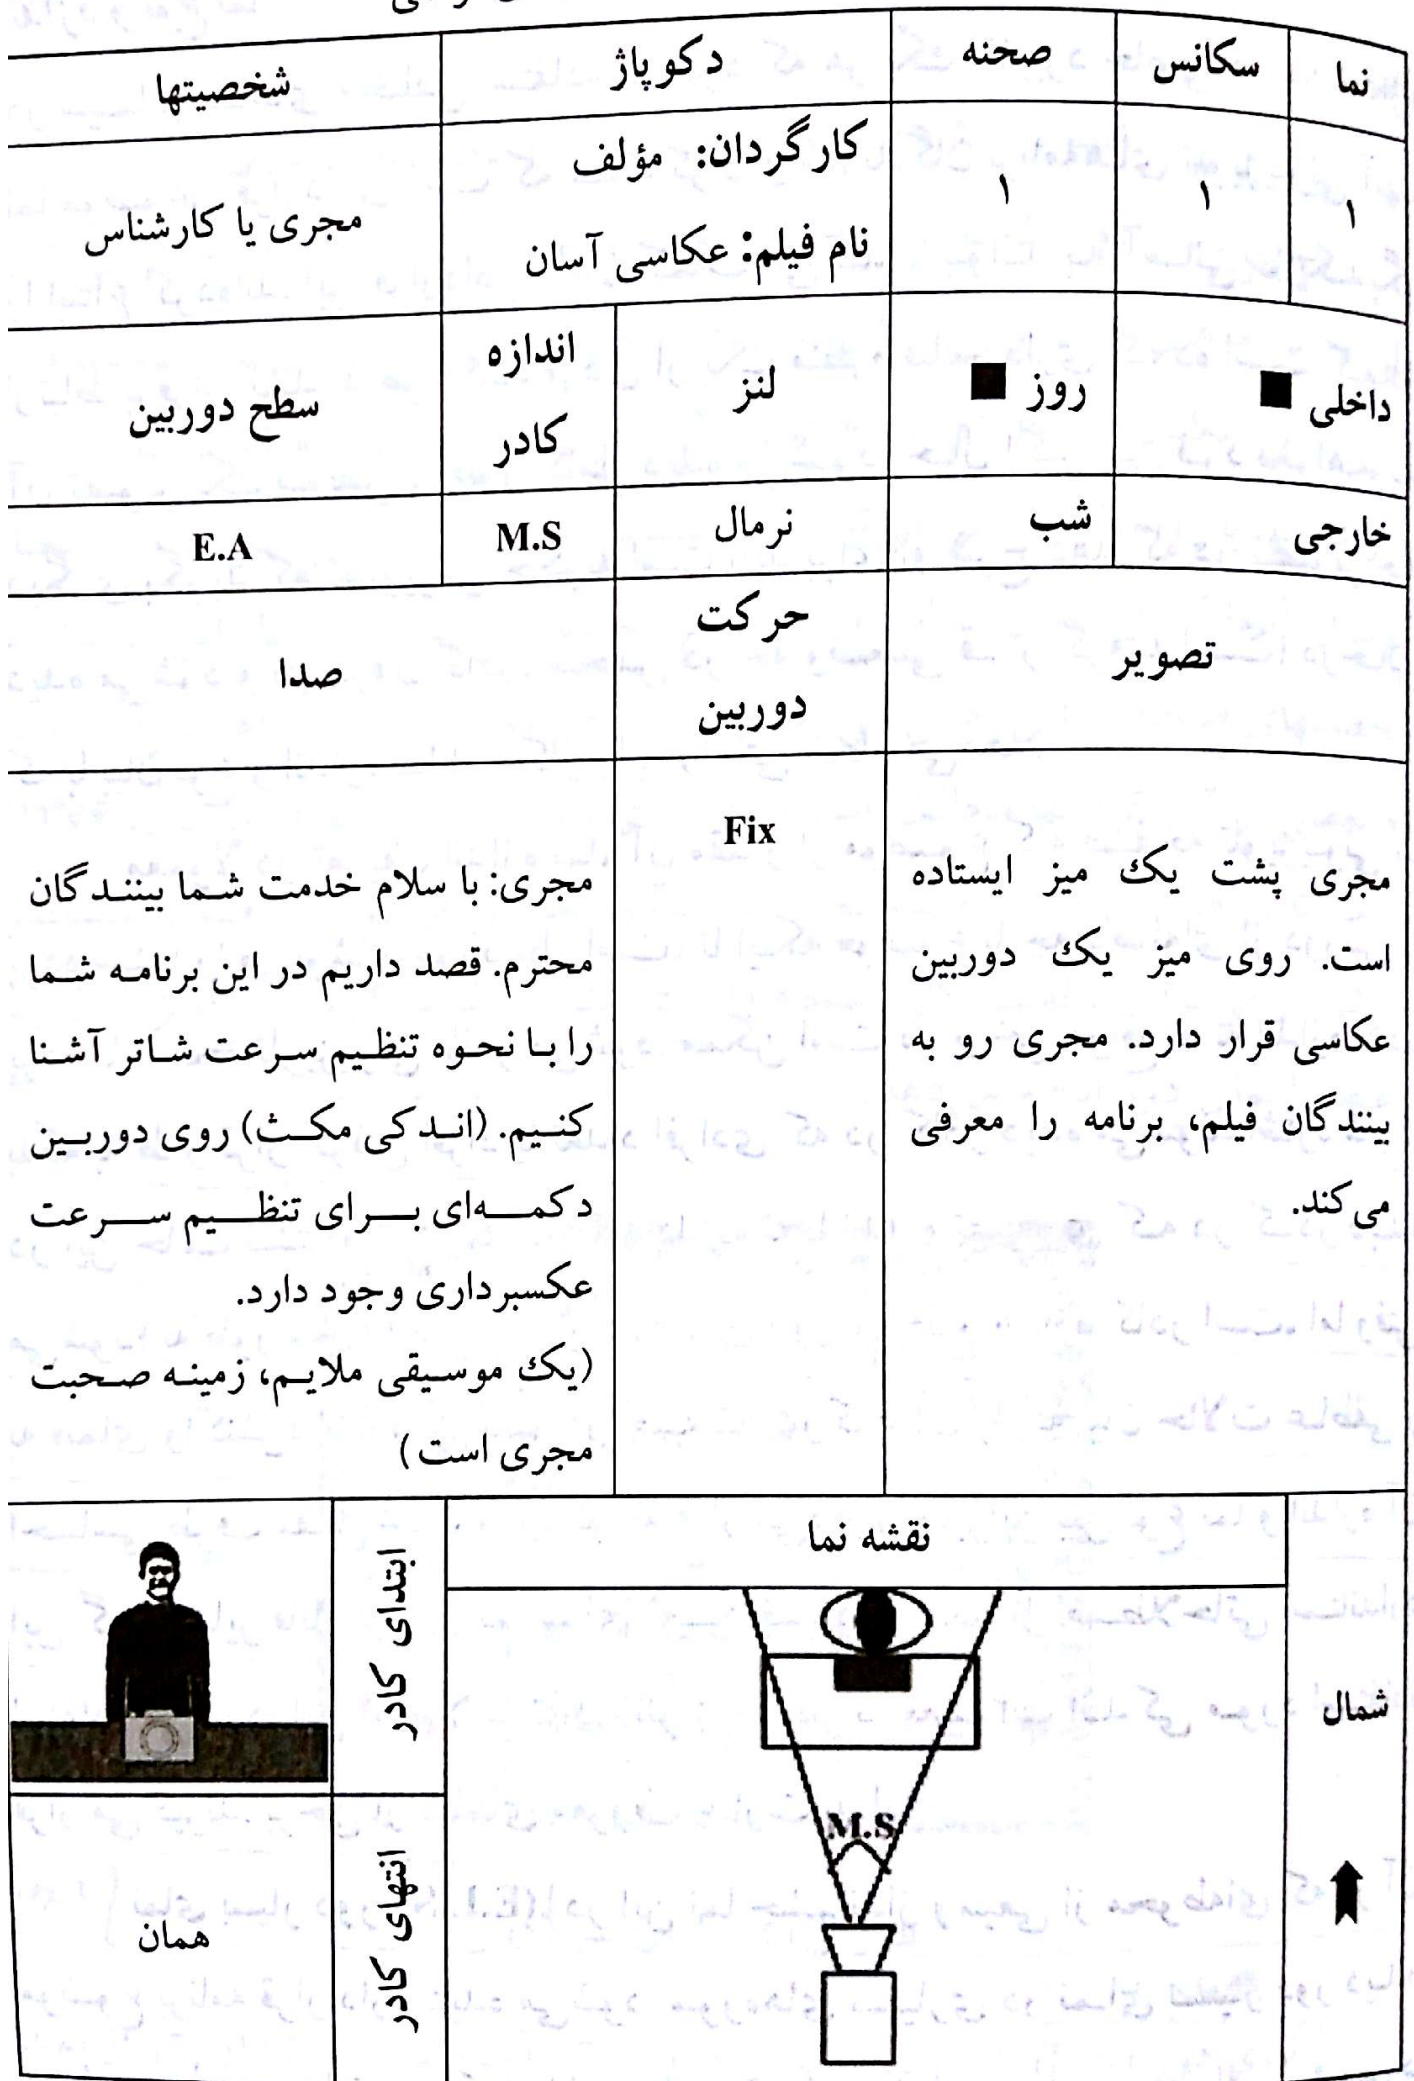 نما
سکانس
صحنه
دکوپاژ
شخصیتها
۱
۱
۱
کارگردان: مؤلف
نام فیلم: عکاسی آسان
مجری یا کارشناس
داخلی ■
روز ■
لنز
اندازه
کادر
سطح دوربین
خارجی
شب
نرمال
M.S
E.A
تصویر
حرکت
دوربین
صدا
مجری پشت یک میز ایستاده
است. روی میز یک دوربین
عکاسی قرار دارد. مجری رو به
بینندگان فیلم، برنامه را معرفی
می‌کند.
Fix
مجری: با سلام خدمت شما بینندگان
محترم. قصد داریم در این برنامه شما
را با نحوه تنظیم سرعت شاتر آشنا
کنیم. (اندکی مکث) روی دوربین
دکمه‌ای برای تنظیم سرعت
عکسبرداری وجود دارد.
(یک موسیقی ملایم، زمینه صحبت
مجری است)
شمال
نقشه نما
M.S
ابتدای کادر
انتهای کادر
همان